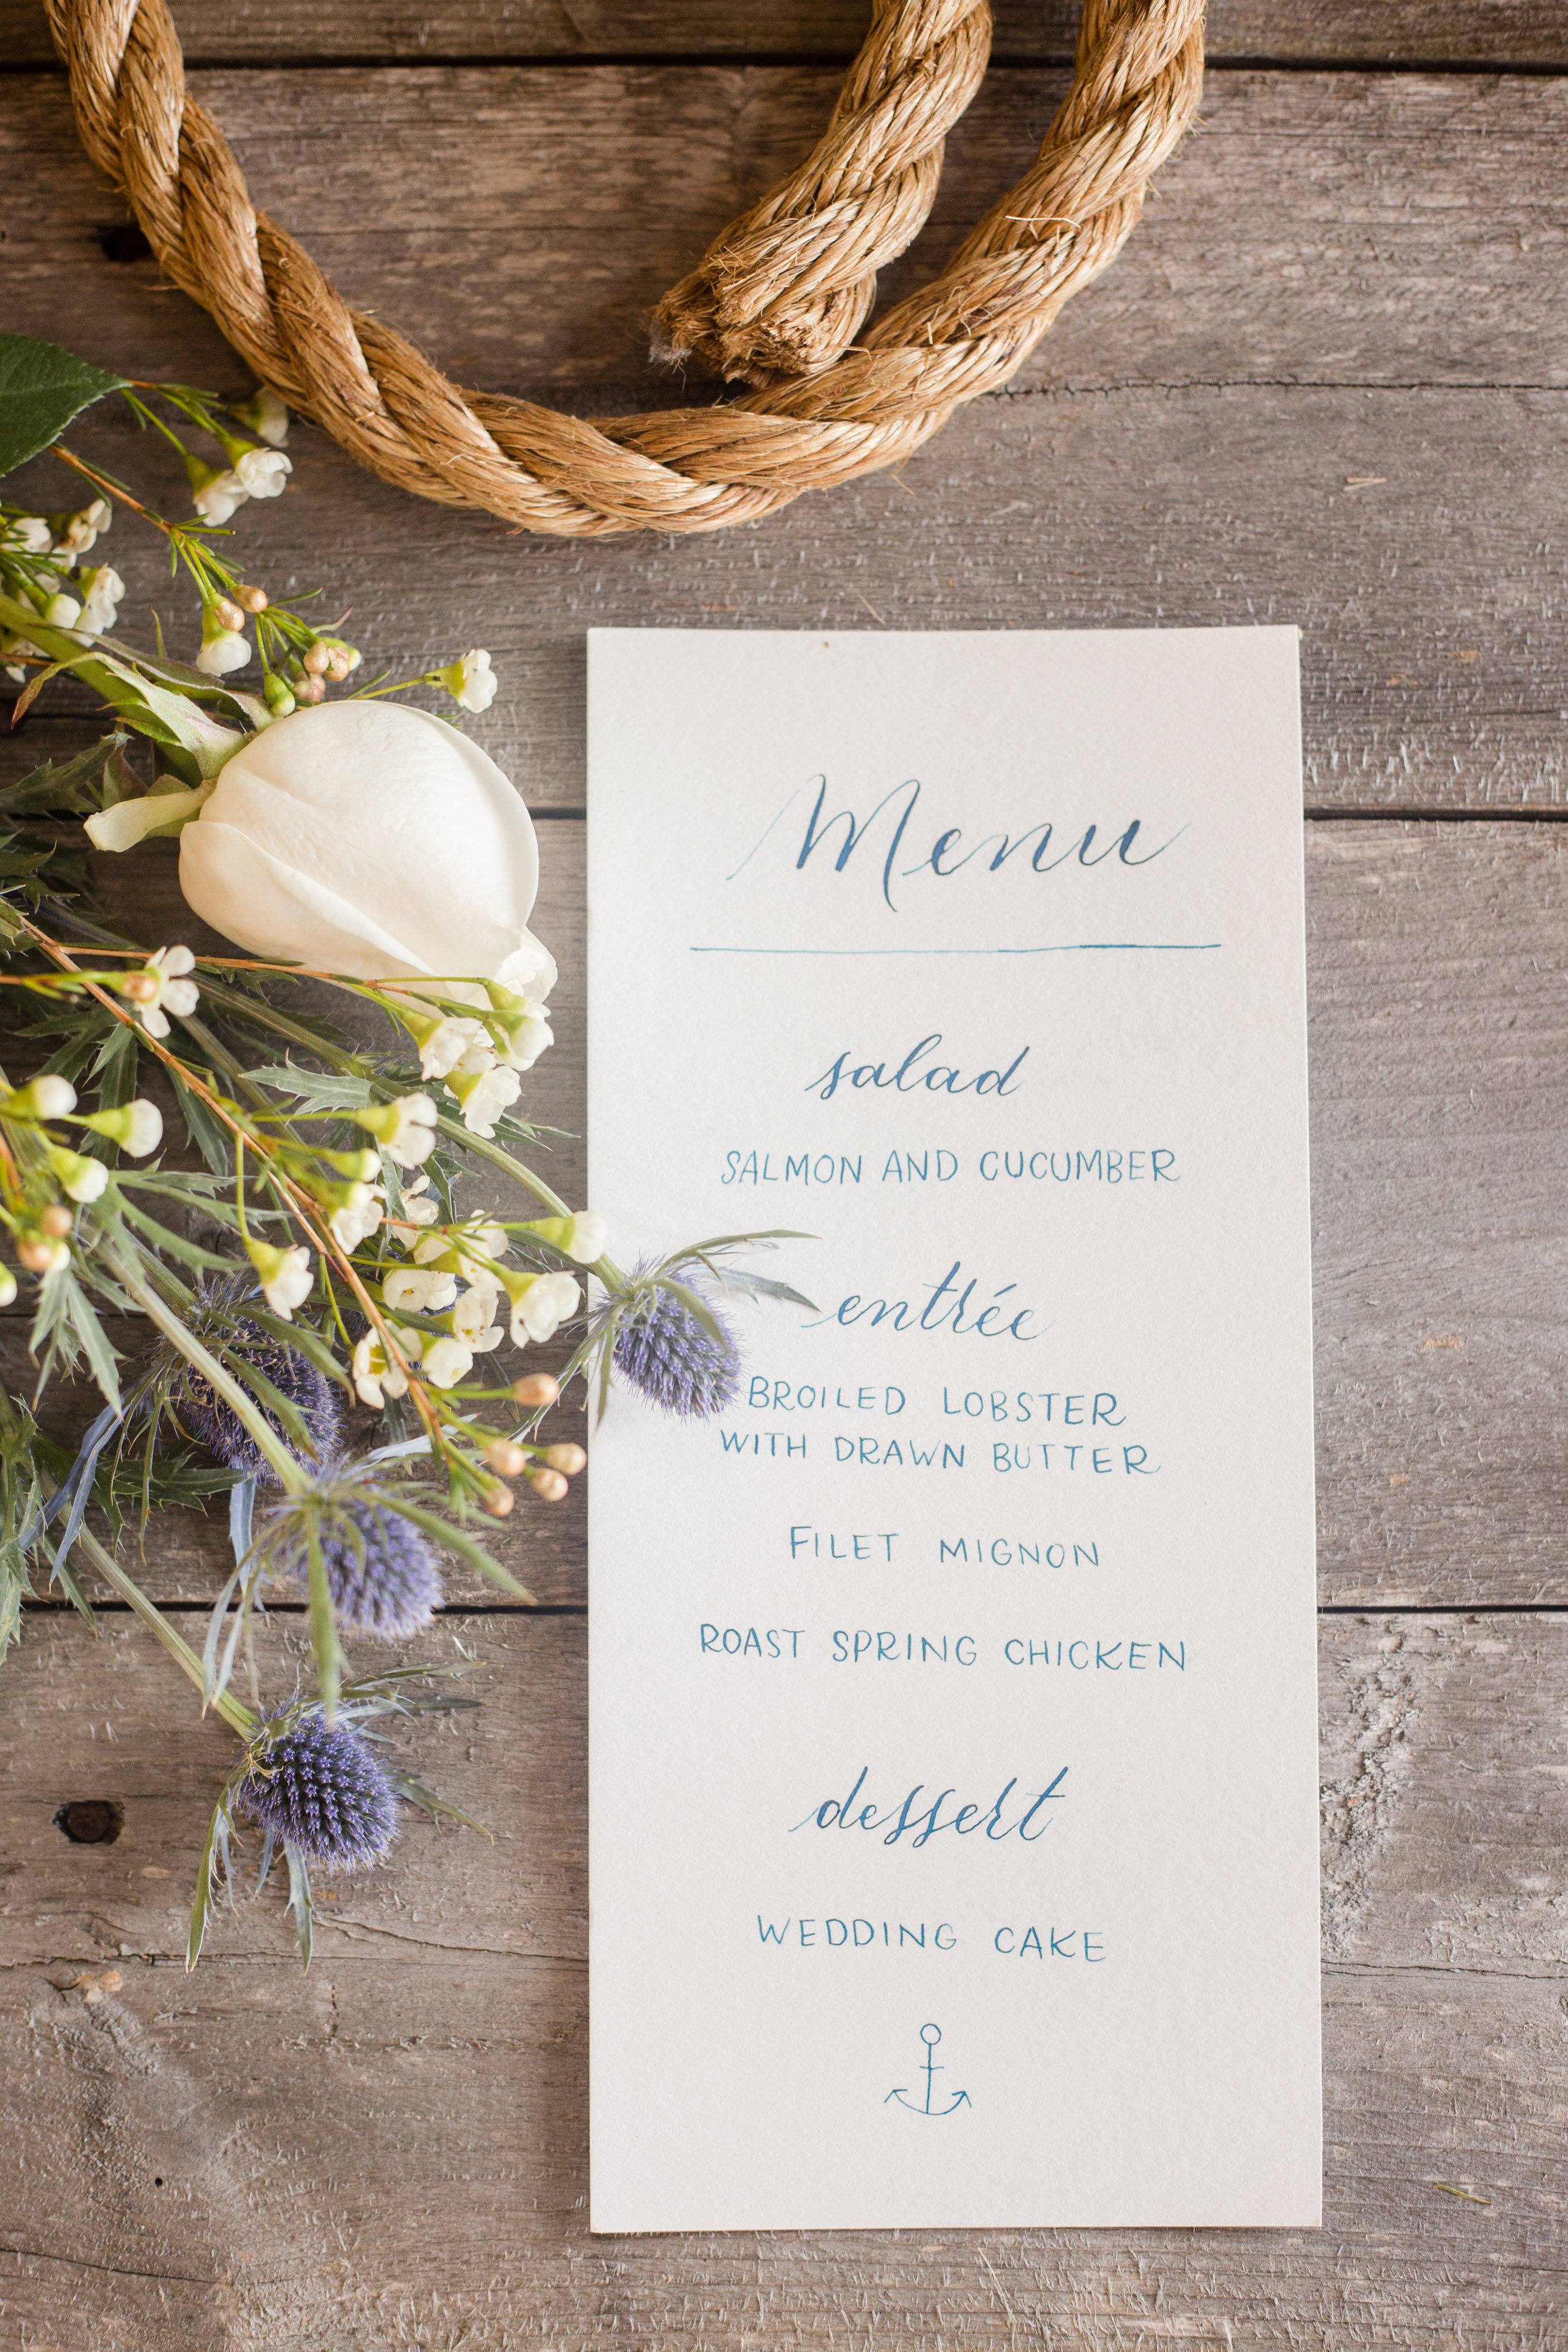 Menu
salad
SALMON AND CUCUMBER
entrée
BROILED LOBSTER
WITH DRAWN BUTTER
FILET MIGNON
ROAST SPRING CHICKEN
dessert
WEDDING CAKE